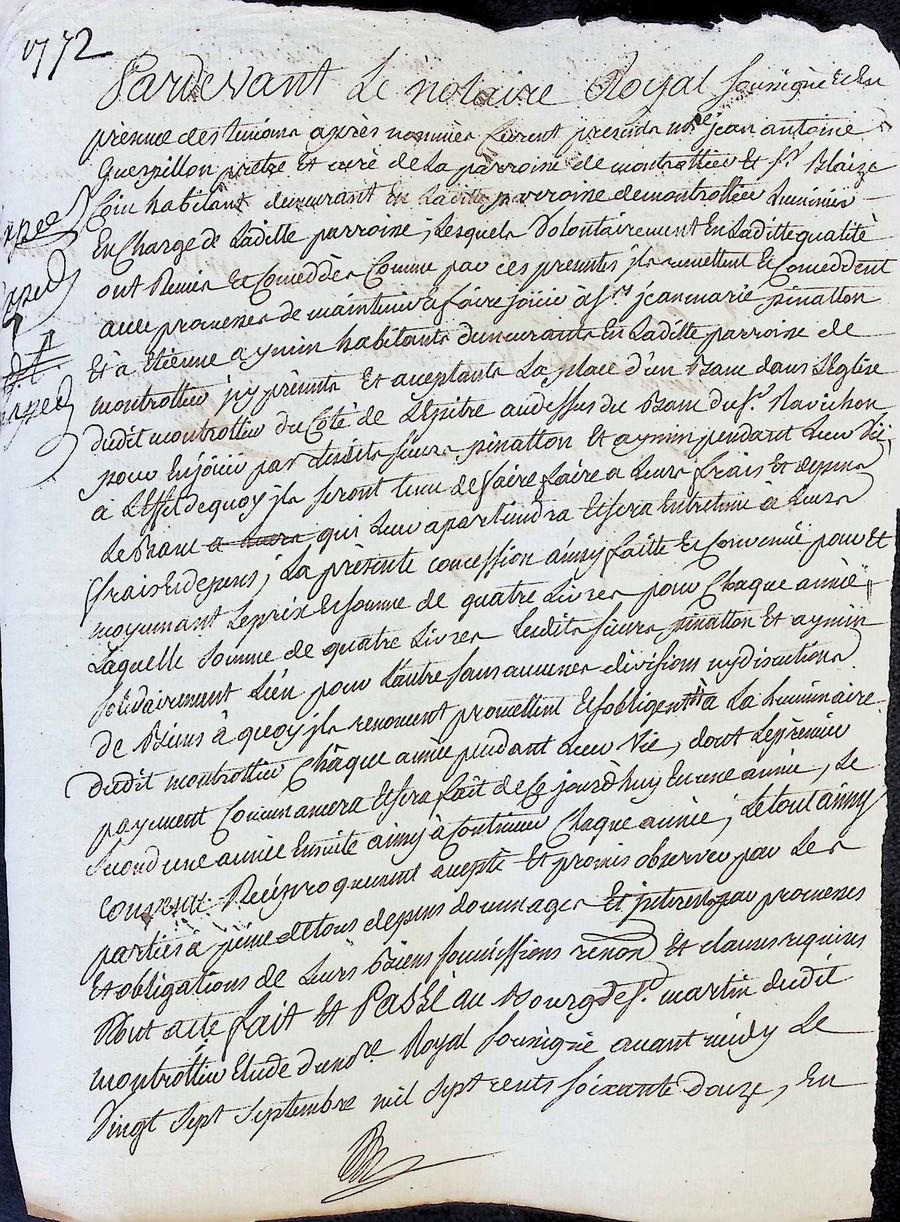 1772
Pardevant Le notaire Royal soussigné et en
présence des temoins après nommés furent presents mre jean antoine
Guespillon pretre et curé de La parroisse de montrottier et sr Blaize
Coin habitant demeurant En Laditte parroisse de montrottier Luminier
En Charge de Laditte parroisse, Lesquels volontairement En Laditte qualité
ont Remis et Comeddés Comme par ces presentes ils remettent et Comeddent
avec promesses de maintenir et faire jouir à sr jean marie pinatton
Et à Etienne aymin habitants demeurants En Laditte parroisse de
montrottier jcy présents Et aceptants La place d'un Banc dans L'Eglise
dudit montrottier du Coté de L'Epitre audessus du Banc du sr Ravichon
pour En jouir par Lesdits sieurs pinatton Et aymin pendant Leur vie
à L'effet de quoy ils seront tenu de faire faire a Leurs frais Et depens
Le Banc qui Leur apartiendra Et sera Entretenu à Leurs
frais Et depens, La présente concession ainsy faitte Et Convenüe pour Et
moyennant Le prix Et somme de quatre Livres pour Chaque année
Laquelle somme de quatre Livres Lesdits sieurs pinatton Et aymin
solidairement L'un pour L'autre sans aucunes divisions ny discutions
de Biens à quoy ils renoncent promettent Et s'obligent à La Luminaire
dudit montrottier Chaque année pendant Leur Vie, dont Le prémier
payement Commancera Et sera fait de Ce jourd'huy En une année, Le
second une année Ensuite ainsy à Continuer Chaque année, Le tout ainsy
convenu Réciproquement acepté Et promis observer par Les
parties à peine de tous depens dommages Et interest par promesses
Et obligations de Leurs Biens soumissions renond Et clauses requises
Dont acte fait Et Passé au Bourg de st martin dudit
montrottier Etude dudit nore Royal soussigné avant midy Le
Vingt sept septembre mil sept cents soixante douze, En